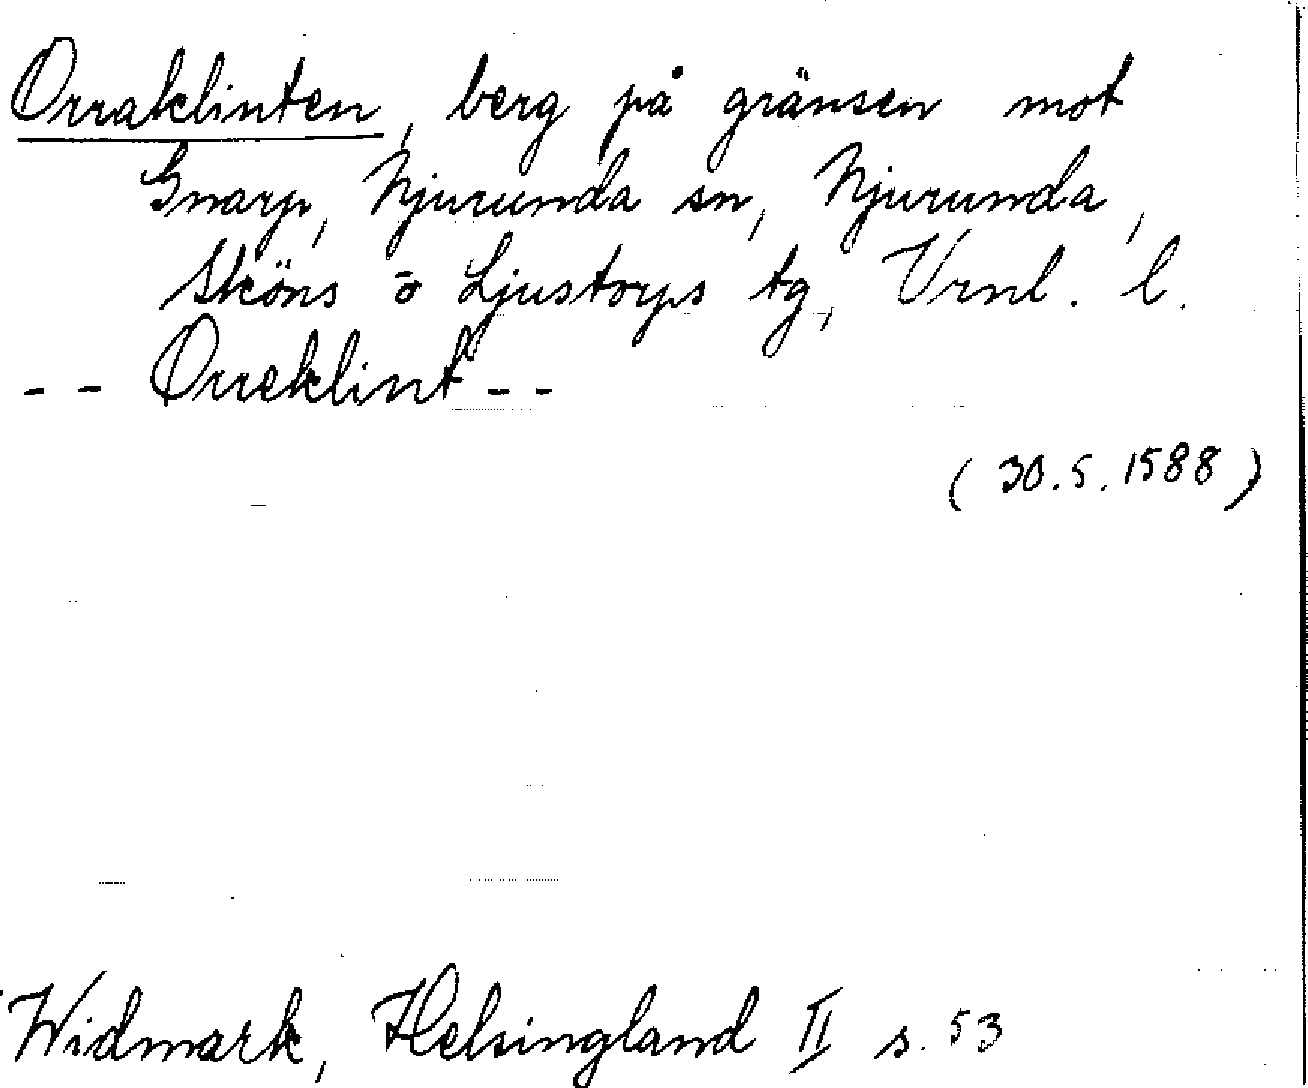 Orraklinten, berg på gränsen mot
Gnarp, Njurunda sn, Njurunda,
Sköns o Ljustorps tg, Vrnl. l.
-- Orreklint --
(30.5.1588)
Widmark, Helsingland II s. 53